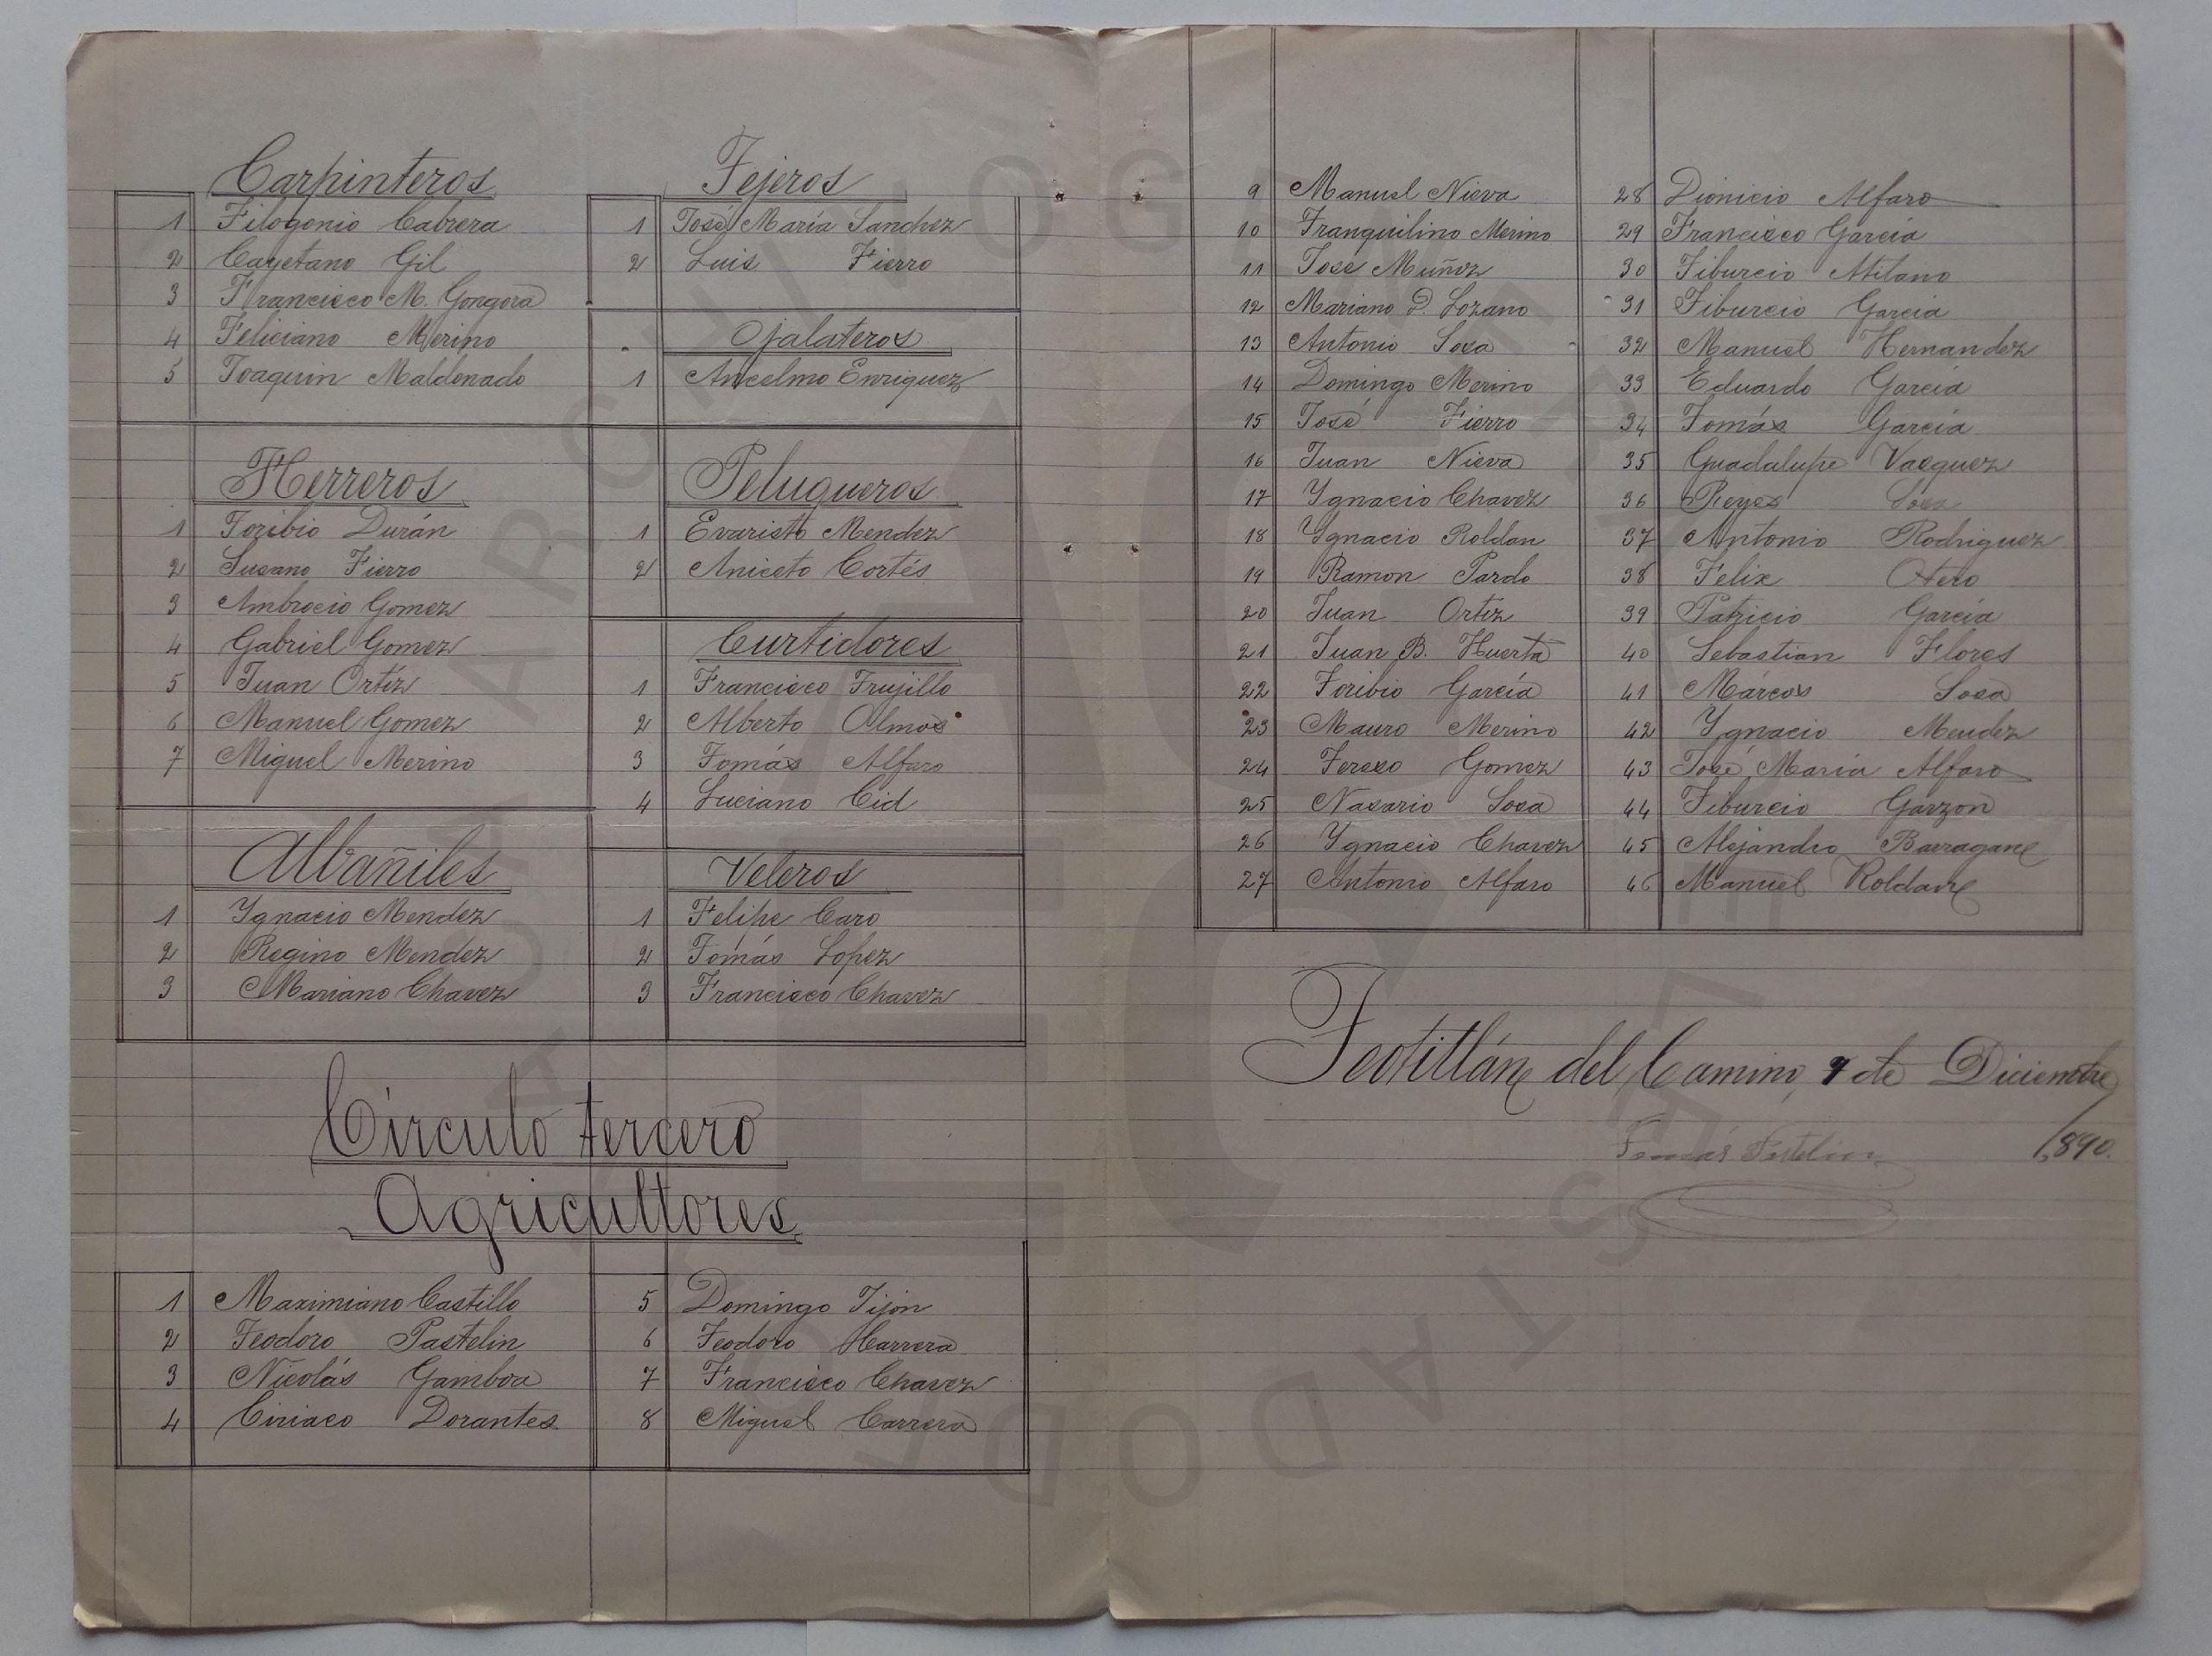 Carpinteros
1 Filogonio Cabrera
2 Cayetano Gil
3 Francisco M. Gongora
4 Feliciano Merino
5 Joaquin Maldonado
Herreros
1 Toribio Durán
2 Susano Fierro
3 Ambrocio Gomez
4 Gabriel Gomez
5 Juan Ortíz
6 Manuel Gomez
7 Miguel Merino
Albañiles
1 Ygnacio Mendez
2 Regino Mendez
3 Mariano Chavez
Tejeros
1 José María Sanchez
2 Luis Fierro
Ojalateros
1 Ancelmo Enriquez
Peluqueros
1 Evaristo Mendez
2 Aniceto Cortés
Curtidores
1 Francisco Trujillo
2 Alberto Olmos
3 Tomás Alfaro
4 Luciano Cid
Veleros
1 Felipe Caro
2 Tomás Lopez
3 Francisco Chavez
Círculo tercero
Agricultores
1 Maximiano Castillo
2 Teodoro Pastelin
3 Nicolás Gamboa
4 Ciriaco Dorantes
5 Domingo Tijon
6 Teodoro Herrera
7 Francisco Chavez
8 Miguel Carrera
9 Manuel Nieva
10 Tranquilino Merino
11 José Muñoz
12 Mariano D. Lozano
13 Antonio Sosa
14 Domingo Merino
15 José Fierro
16 Juan Nieva
17 Ygnacio Chavez
18 Ygnacio Roldan
19 Ramon Pardo
20 Juan Ortiz
21 Juan B. Huerta
22 Toribio García
23 Mauro Merino
24 Tereso Gomez
25 Nasario Sosa
26 Ygnacio Chavez
27 Antonio Alfaro
28 Dionicio Alfaro
29 Francisco García
30 Tiburcio Atilano
31 Tiburcio García
32 Manuel Hernandez
33 Eduardo García
34 Tomás García
35 Guadalupe Vasquez
36 Reyes Sosa
37 Antonio Rodriguez
38 Felix Otero
39 Patricio García
40 Sebastian Flores
41 Márcos Sosa
42 Ygnacio Mendez
43 José María Alfaro
44 Tiburcio Garzon
45 Alejandro Barragan
46 Manuel Roldan
Teotitlán del Camino, 9 de Diciembre
1,890.
Tomás Pastelin